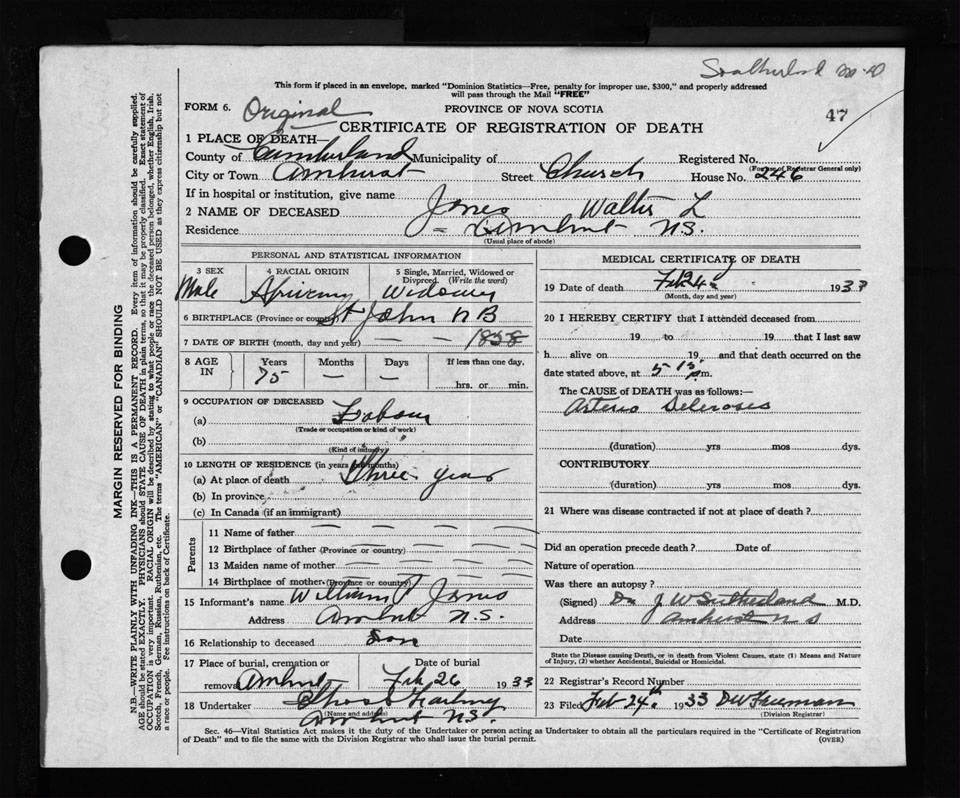 This form if placed in an envelope, marked "Dominion Statistics—Free, penalty for improper use, $300," and properly addressed
will pass through the Mail "FREE"
FORM 6. Original PROVINCE OF NOVA SCOTIA 47
CERTIFICATE OF REGISTRATION OF DEATH
1 PLACE OF DEATH—
County of Cumberland Municipality of Registered No.
(For use of Registrar General only)
City or Town Amherst Street Church House No. 246
If in hospital or institution, give name
2 NAME OF DECEASED Jones Walter L
Residence Amherst N.S.
(Usual place of abode)
PERSONAL AND STATISTICAL INFORMATION
3 SEX 4 RACIAL ORIGIN 5 Single, Married, Widowed or Divorced. (Write the word)
Male Widower
6 BIRTHPLACE (Province or country) St John N B
7 DATE OF BIRTH (month, day and year) — — 1858
8 AGE IN Years Months Days If less than one day,
75 — — hrs. or min.
9 OCCUPATION OF DECEASED
(a) Labour
(Trade or occupation or kind of work)
(b)
(Kind of industry)
10 LENGTH OF RESIDENCE (in years and months)
(a) At place of death Three years
(b) In province
(c) In Canada (if an immigrant)
Parents
11 Name of father
12 Birthplace of father (Province or country)
13 Maiden name of mother
14 Birthplace of mother (Province or country)
15 Informant's name William P Jones
Address Amherst N.S.
16 Relationship to deceased Son
17 Place of burial, cremation or removal Amherst Date of burial Feb 26 1933
18 Undertaker
(Name and address) Amherst N.S.
MEDICAL CERTIFICATE OF DEATH
19 Date of death Feb 24 1933
(Month, day and year)
20 I HEREBY CERTIFY that I attended deceased from
19 to 19 that I last saw
h alive on 19 and that death occurred on
date stated above, at 5-15 p.m.
The CAUSE of DEATH was as follows:—
Arterio Sclerosis
(duration) yrs mos dys.
CONTRIBUTORY
(duration) yrs mos dys.
21 Where was disease contracted if not at place of death?
Did an operation precede death? Date of
Nature of operation
Was there an autopsy?
(Signed) Dr J W Sutherland M.D.
Address Amherst N S
Date
State the Disease causing Death, or in death from Violent Causes, state (1) Means and Nature
of Injury, (2) whether Accidental, Suicidal or Homicidal.
22 Registrar's Record Number
23 Filed Feb 24th 1933 D W Freeman
(Division Registrar)
Sec. 46—Vital Statistics Act makes it the duty of the Undertaker or person acting as Undertaker to obtain all the particulars required in the "Certificate of Registration
of Death" and to file the same with the Division Registrar who shall issue the burial permit. (OVER)
MARGIN RESERVED FOR BINDING
N.B.—WRITE PLAINLY WITH UNFADING INK—THIS IS A PERMANENT RECORD. Every item of information should be carefully supplied.
AGE should be stated EXACTLY. PHYSICIANS should STATE CAUSE OF DEATH in plain terms, so that it may be properly classified. Exact statement of
OCCUPATION is very important. RACIAL ORIGIN will be described by stating to what people or race the deceased person belonged, whether English, Irish,
Scotch, French, German, Russian, Ruthenian, etc. The terms "AMERICAN" or "CANADIAN" SHOULD NOT BE USED as they express citizenship but not
a race or people. See instructions on back of Certificate.